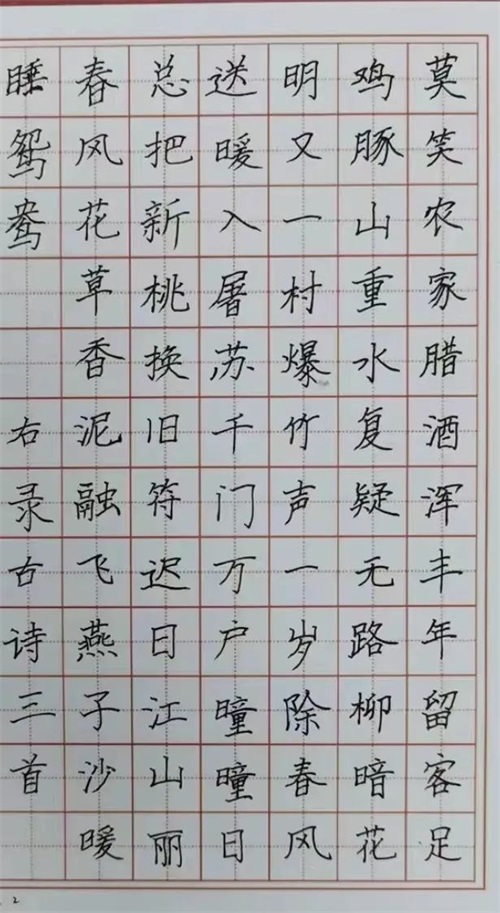 莫笑农家腊酒浑丰年留客足
鸡豚山重水复疑无路柳暗花
明又一村爆竹声一岁除春风
送暖入屠苏千门万户曈曈日
总把新桃换旧符迟日江山丽
春风花草香泥融飞燕子沙暖
睡鸳鸯 右录古诗三首
2